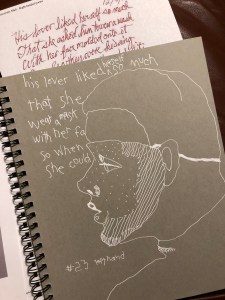 His lover liked herself so much
That she asked him to wear a mask
With her face molded onto it
were kissing
his lover liked herself so much
that she
wear a mask
with her fa
so when
she could
#23